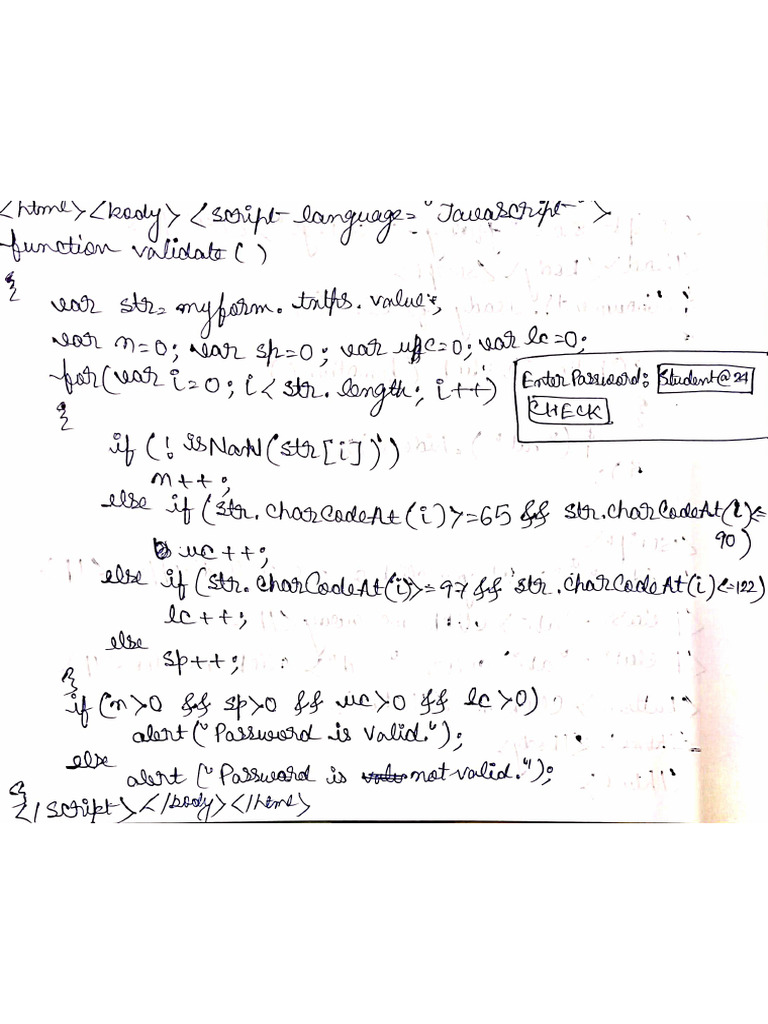 <html><body><script language="Javascript">
function validate()
{
var str=myform.txtps.value;
var n=0; var sp=0; var upc=0; var lc=0;
for(var i=0; i<str.length; i++)
Enter Password: Student@24
CHECK
{
if (! isNaN(str[i]))
n++;
else if (str.charCodeAt(i)>=65 && str.charCodeAt(i)<=
90)
uc++;
else if (str.charCodeAt(i)>=97 && str.charCodeAt(i)<=122)
lc++;
else
sp++;
}
if (n>0 && sp>0 && uc>0 && lc>0)
alert("Password is valid.");
else
alert("Password is not valid.");
}
</script></body></html>